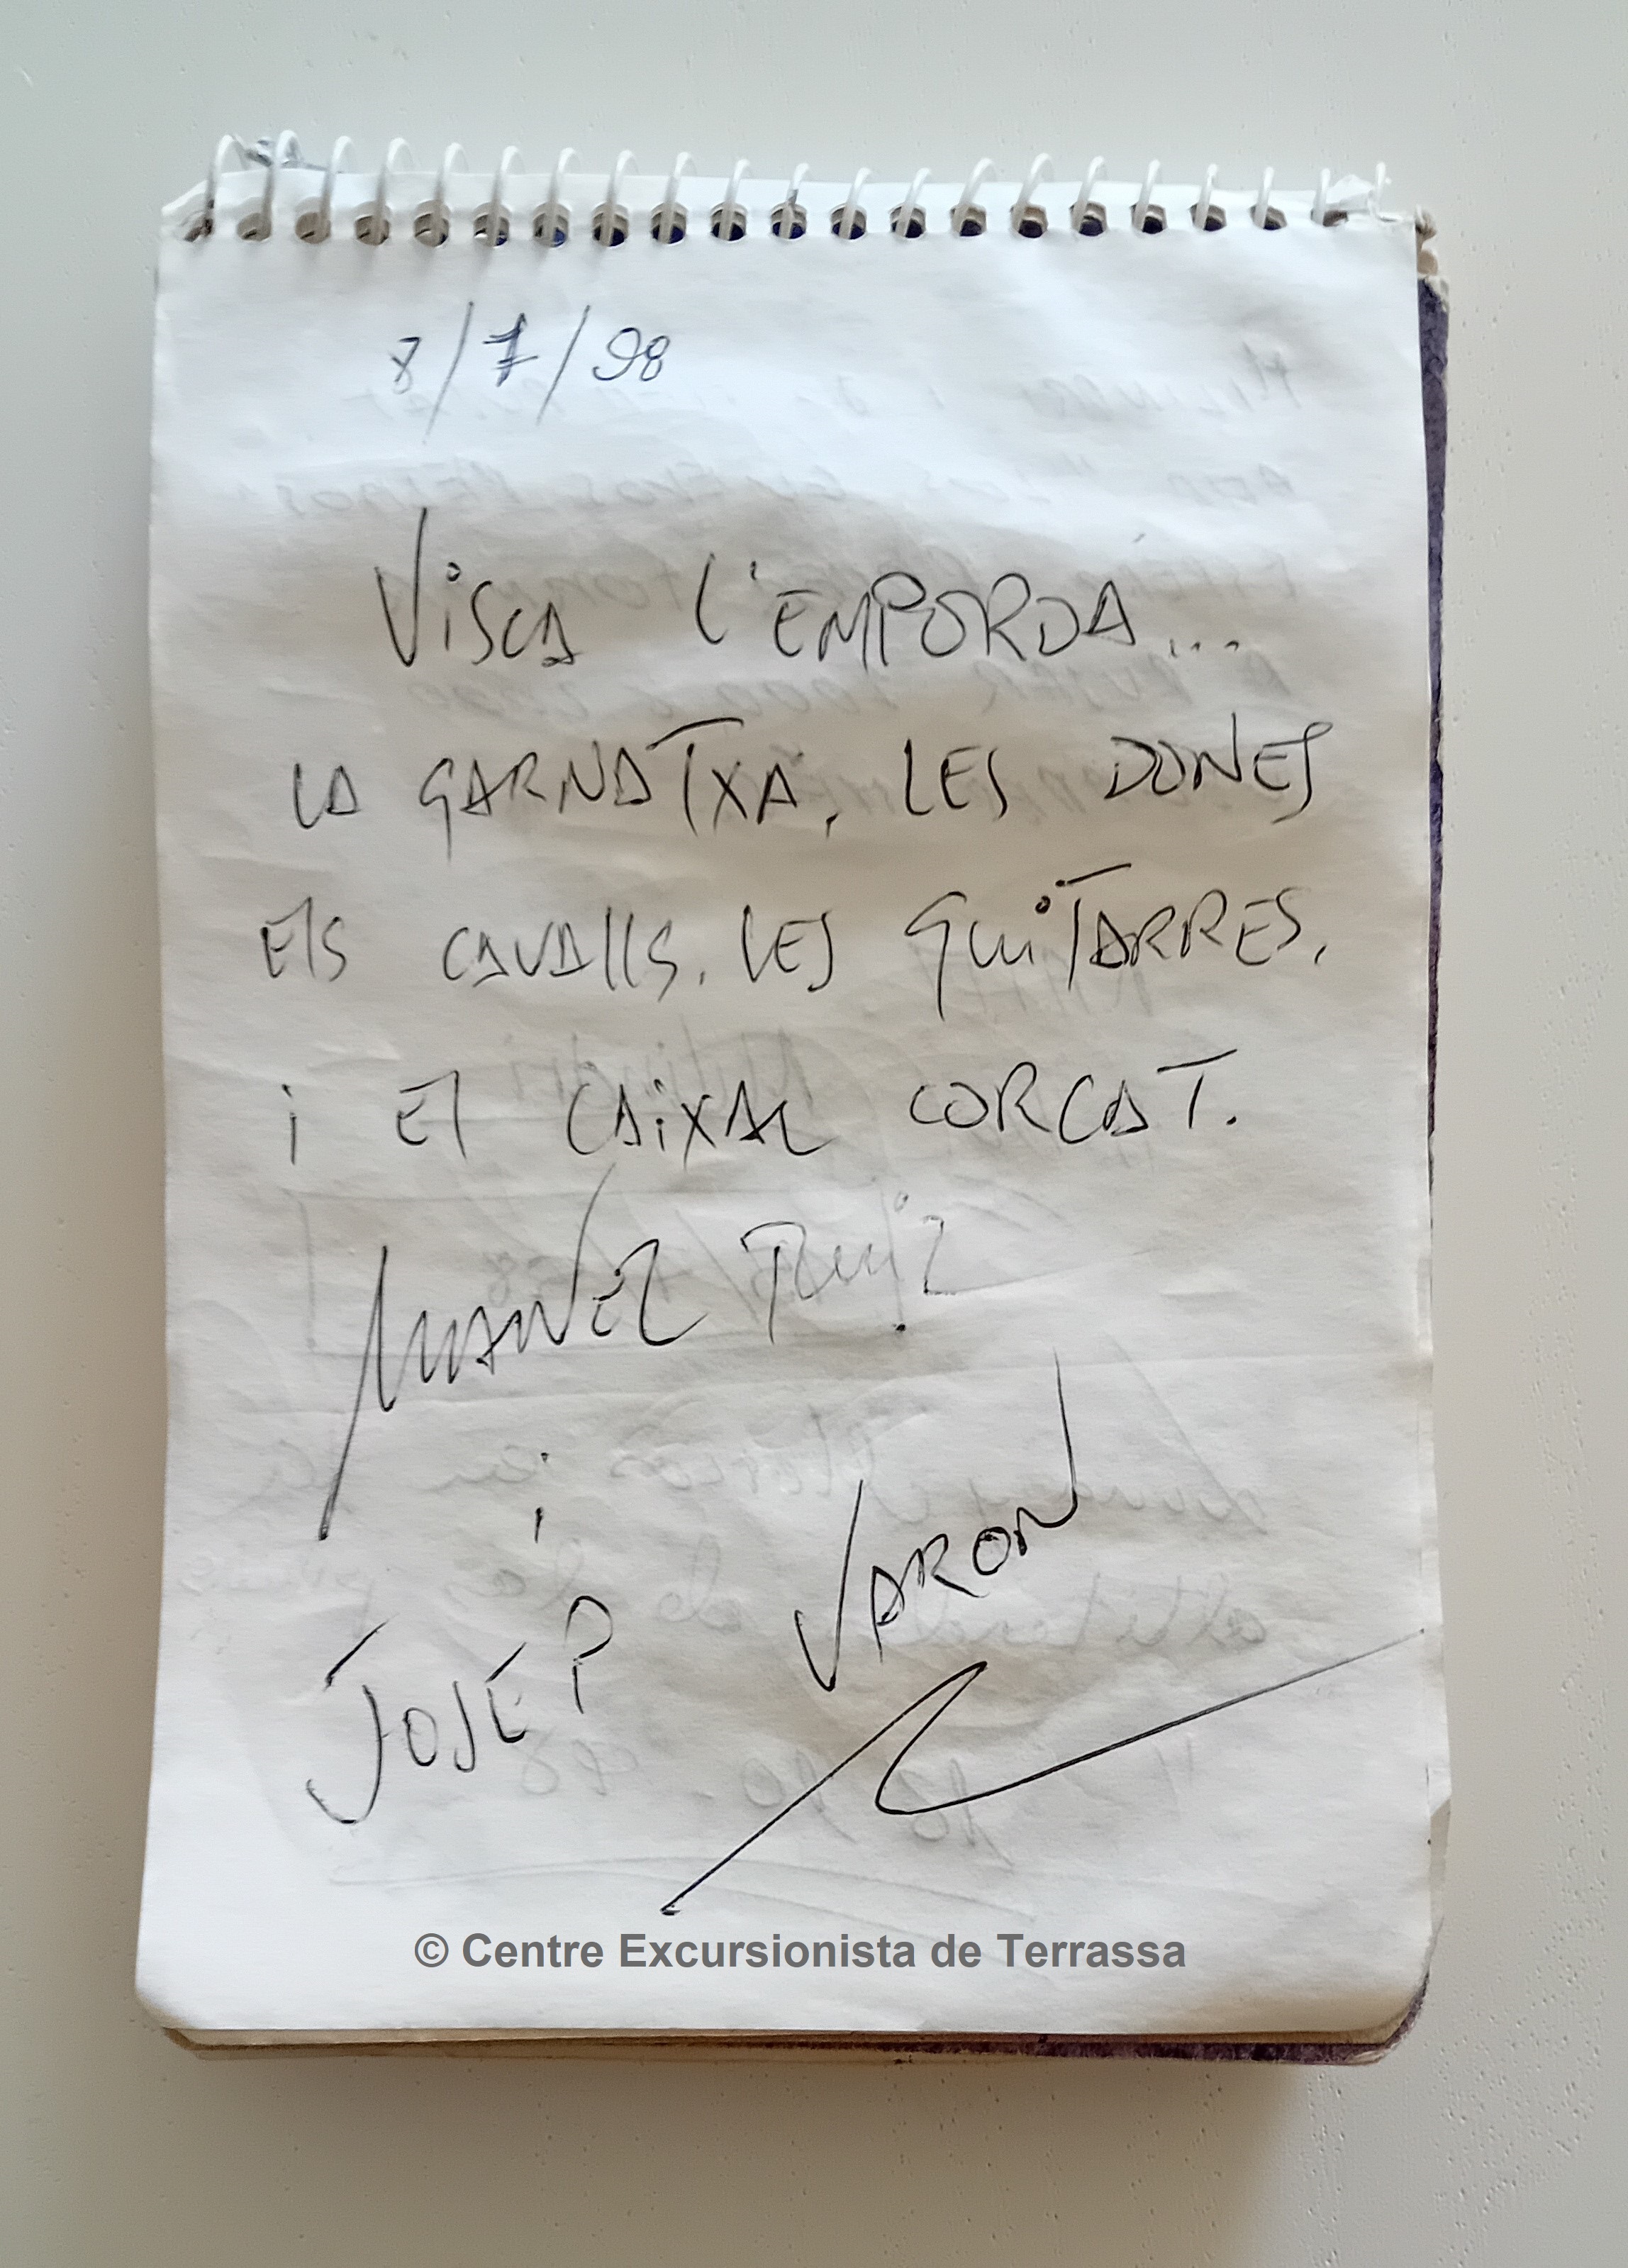 8/7/98
VISCA L'EMPORDÀ...
LA GARNATXA, LES DONES
ELS CAVALLS, LES GUITARRES,
i EL CAIXAL CORCAT.
MANEL RUIZ
i
JOSEP VARON
© Centre Excursionista de Terrassa